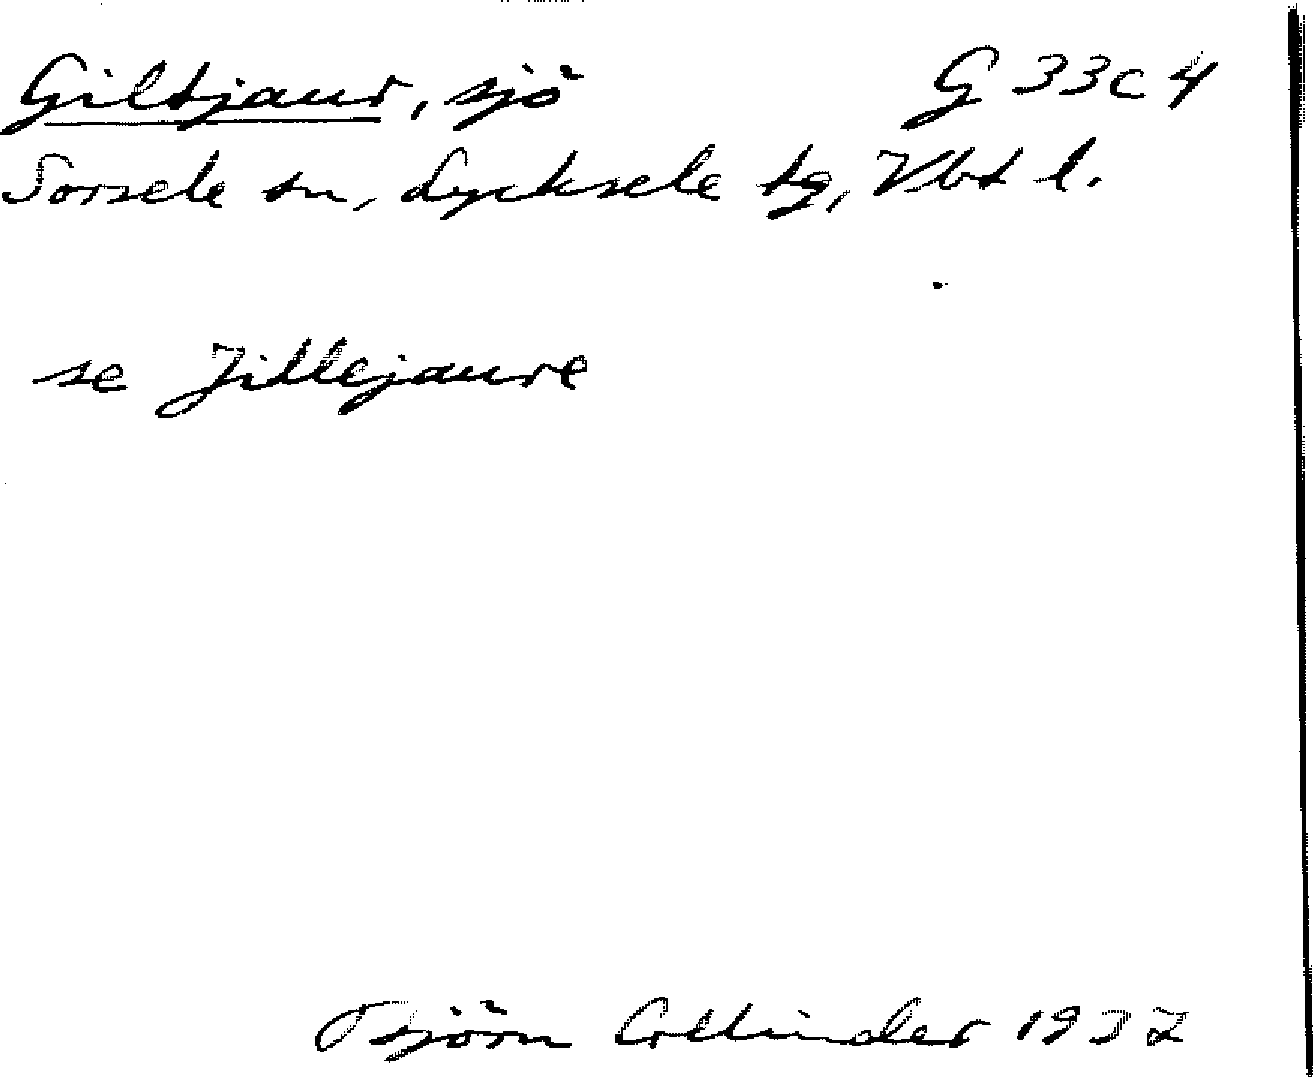 Giltjaur, sjö G 33c4
Sorsele sn, Lycksele tg, Vbt l.
se Jillejaure
Björn Collinder 1937